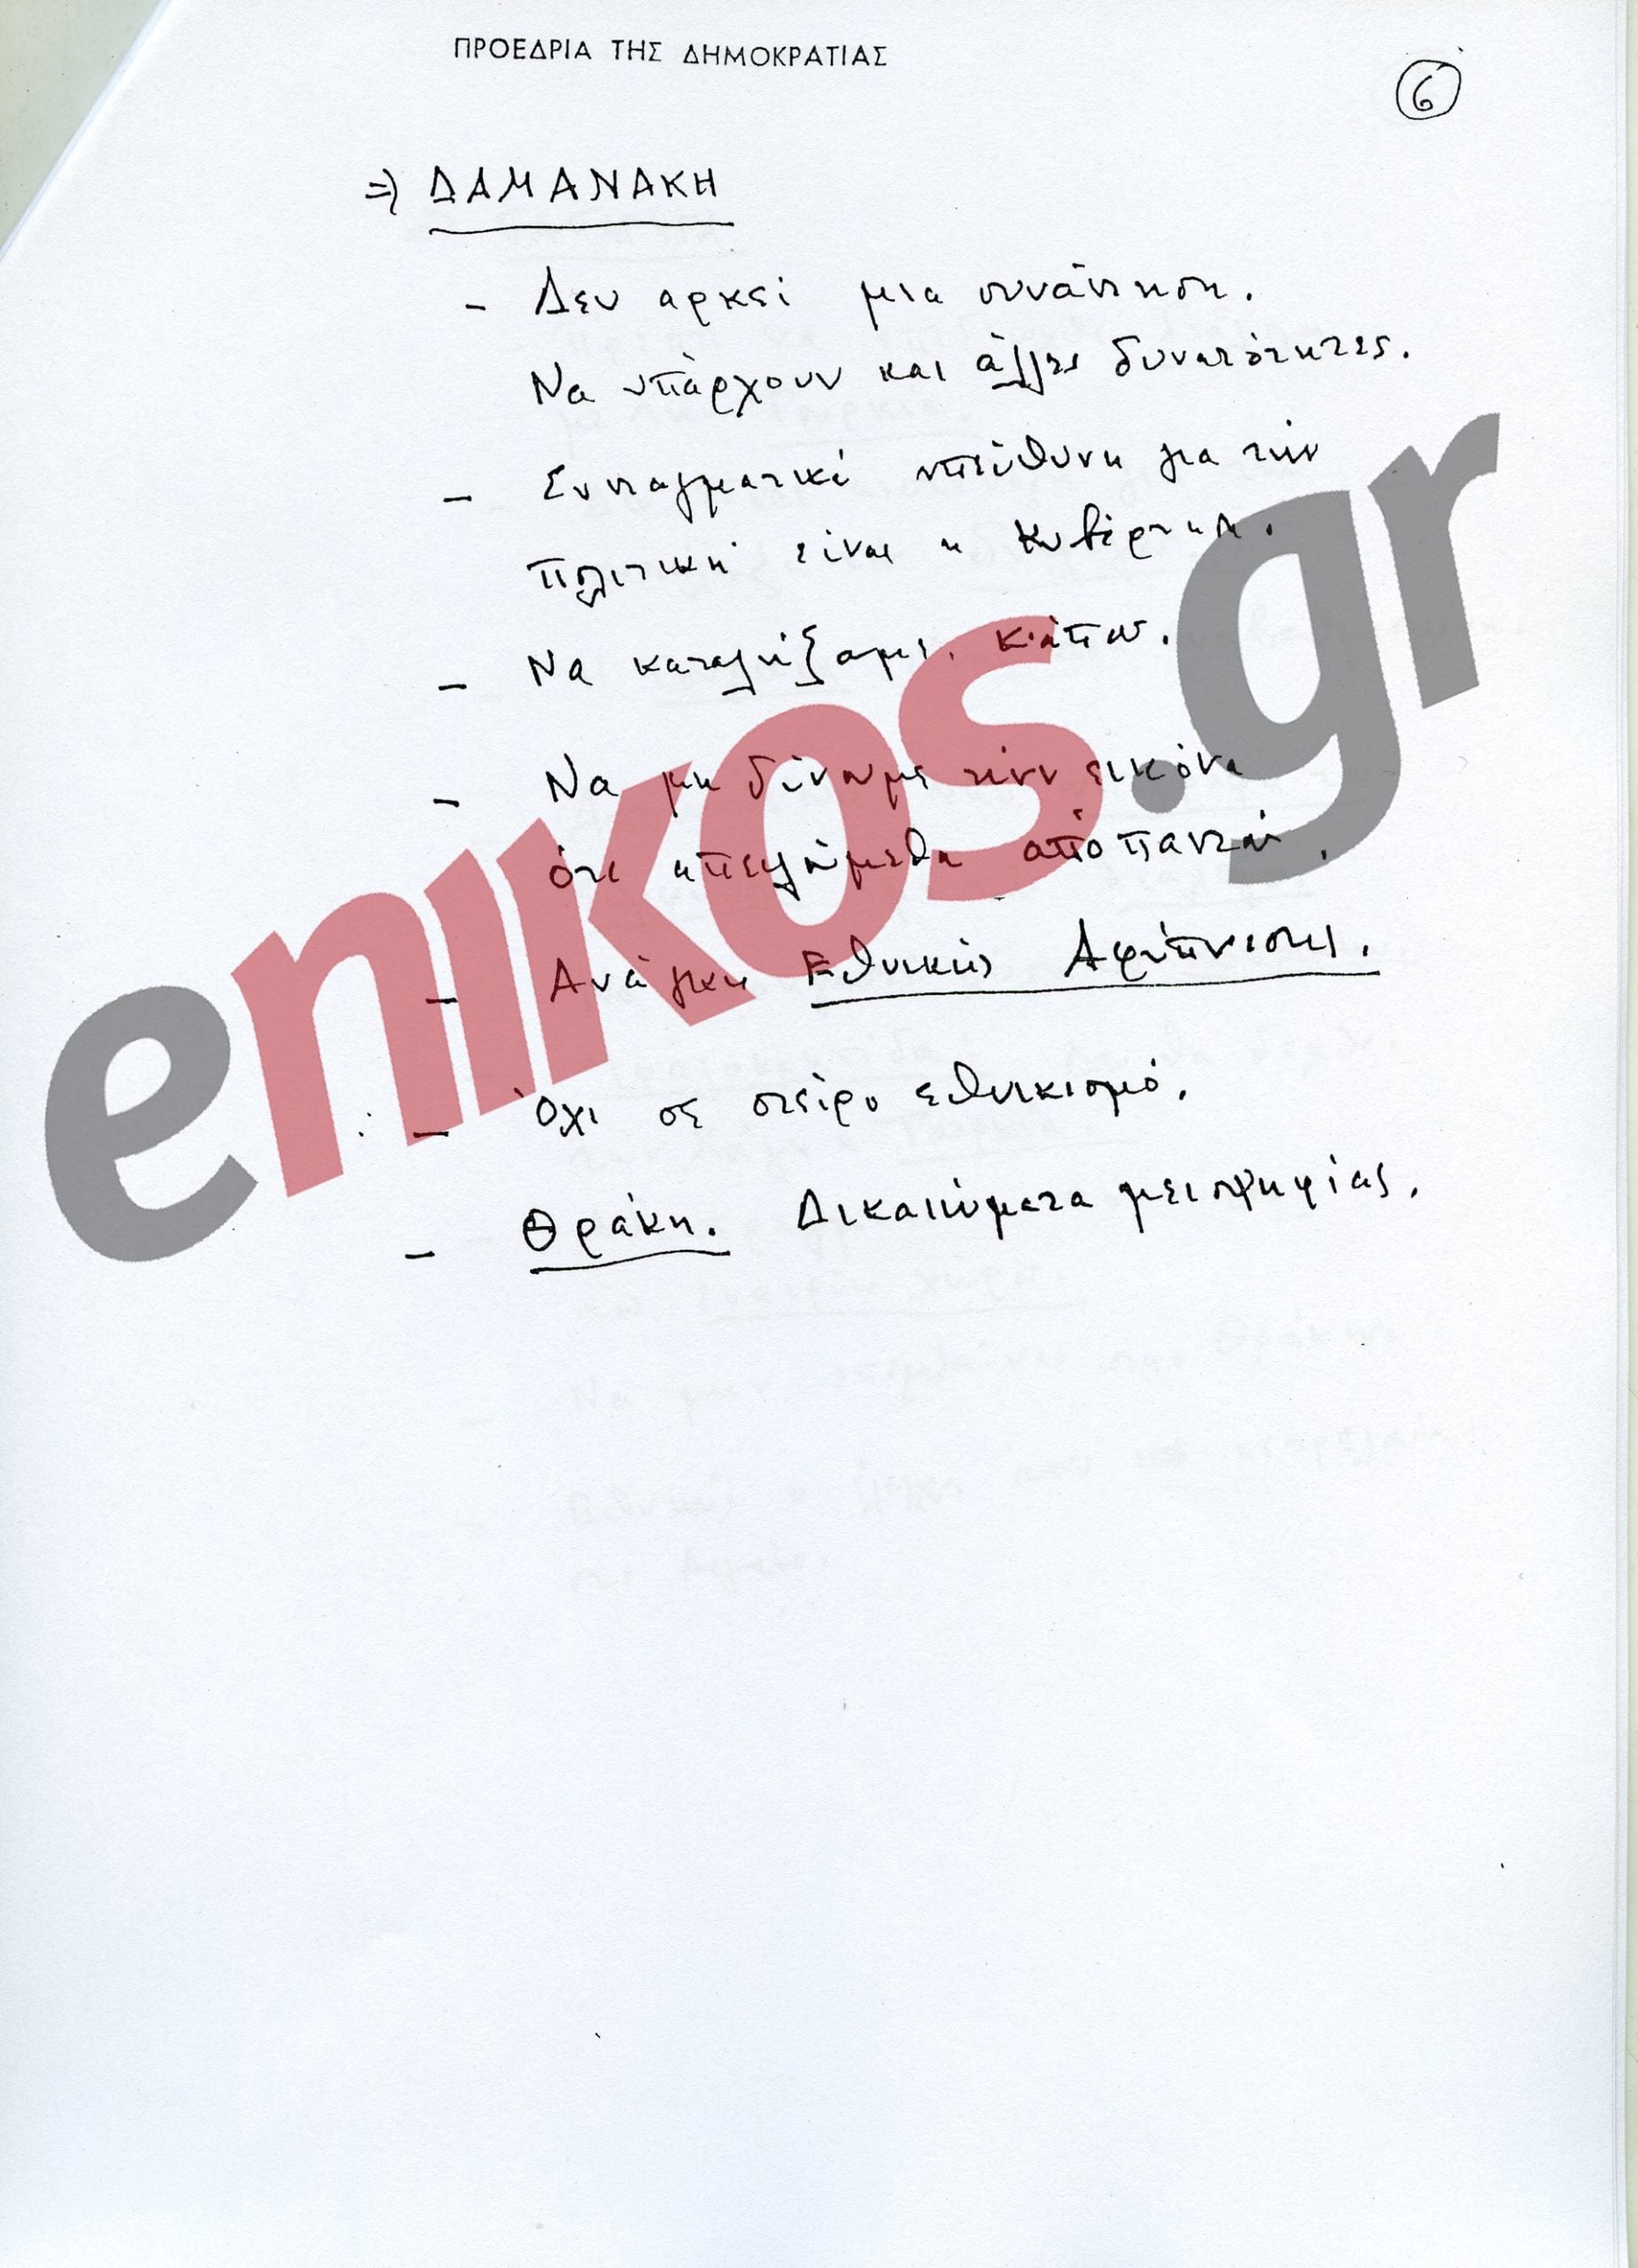 ΠΡΟΕΔΡΙΑ ΤΗΣ ΔΗΜΟΚΡΑΤΙΑΣ
6
=) ΔΑΜΑΝΑΚΗ
- Δεν αρκεί μια συνάντηση.
Να υπάρχουν και άλλες δυνατότητες.
- Συνταγματικά υπεύθυνη για την
πολιτική είναι η Κυβέρνηση.
- Να καταλήξομε κάπου.
- Να μη δίνομε την εικόνα
ότι απειλούμεθα από παντού.
- Ανάγκη Εθνικής Αφύπνισης.
- Όχι σε στείρο εθνικισμό.
- Θράκη. Δικαιώματα μειοψηφίας.
enikos.gr